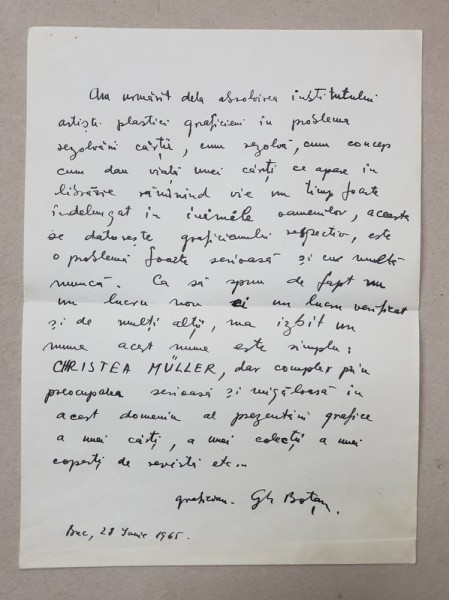 Am urmărit dela absolvirea institutului
artiști plastici graficieni în problema
rezolvării cărții, cum rezolvă, cum concep
cum dau viață unei cărți ce apare în
librărie rămînînd vie un timp foarte
îndelungat în inimile oamenilor, aceasta
se datorește graficianului respectiv, este
o problemă foarte serioasă și cu multă
muncă. Ca să spun de fapt nu
un lucru nou ci un lucru verificat
și de mulți alții, m-a izbit un
nume acest nume este simplu:
CHRISTEA MÜLLER, dar complex prin
preocuparea serioasă și migăloasă în
acest domeniu al prezentării grafice
a unei cărți, a unei colecții a unei
coperți de revistă etc..
grafician. Gh Boțan.
Buc, 28 Iunie 1965.